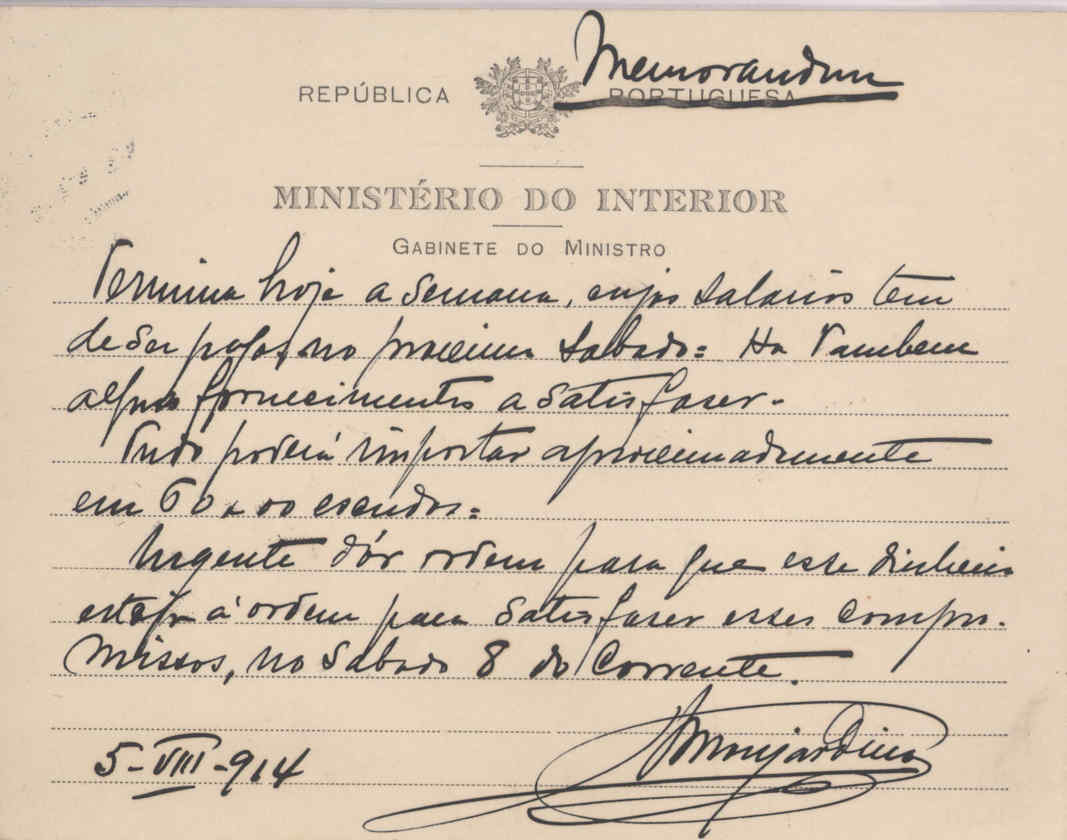 Memorandum
REPÚBLICA PORTUGUESA
MINISTÉRIO DO INTERIOR
GABINETE DO MINISTRO
Termina hoje a semana, cujos salarios tem
de ser pagos no proximo sabado: Ha tambem
alguns fornecimentos a satisfazer.
Tudo poderá importar aproximadamente
em escudos:
Urgente dár ordem para que esse dinheiro
esteja á ordem para satisfazer esses compro-
missos, no sabado 8 do corrente.
5-VIII-914